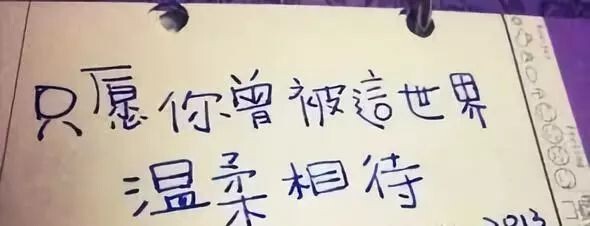 只愿你曾被這世界
温柔相待
2013